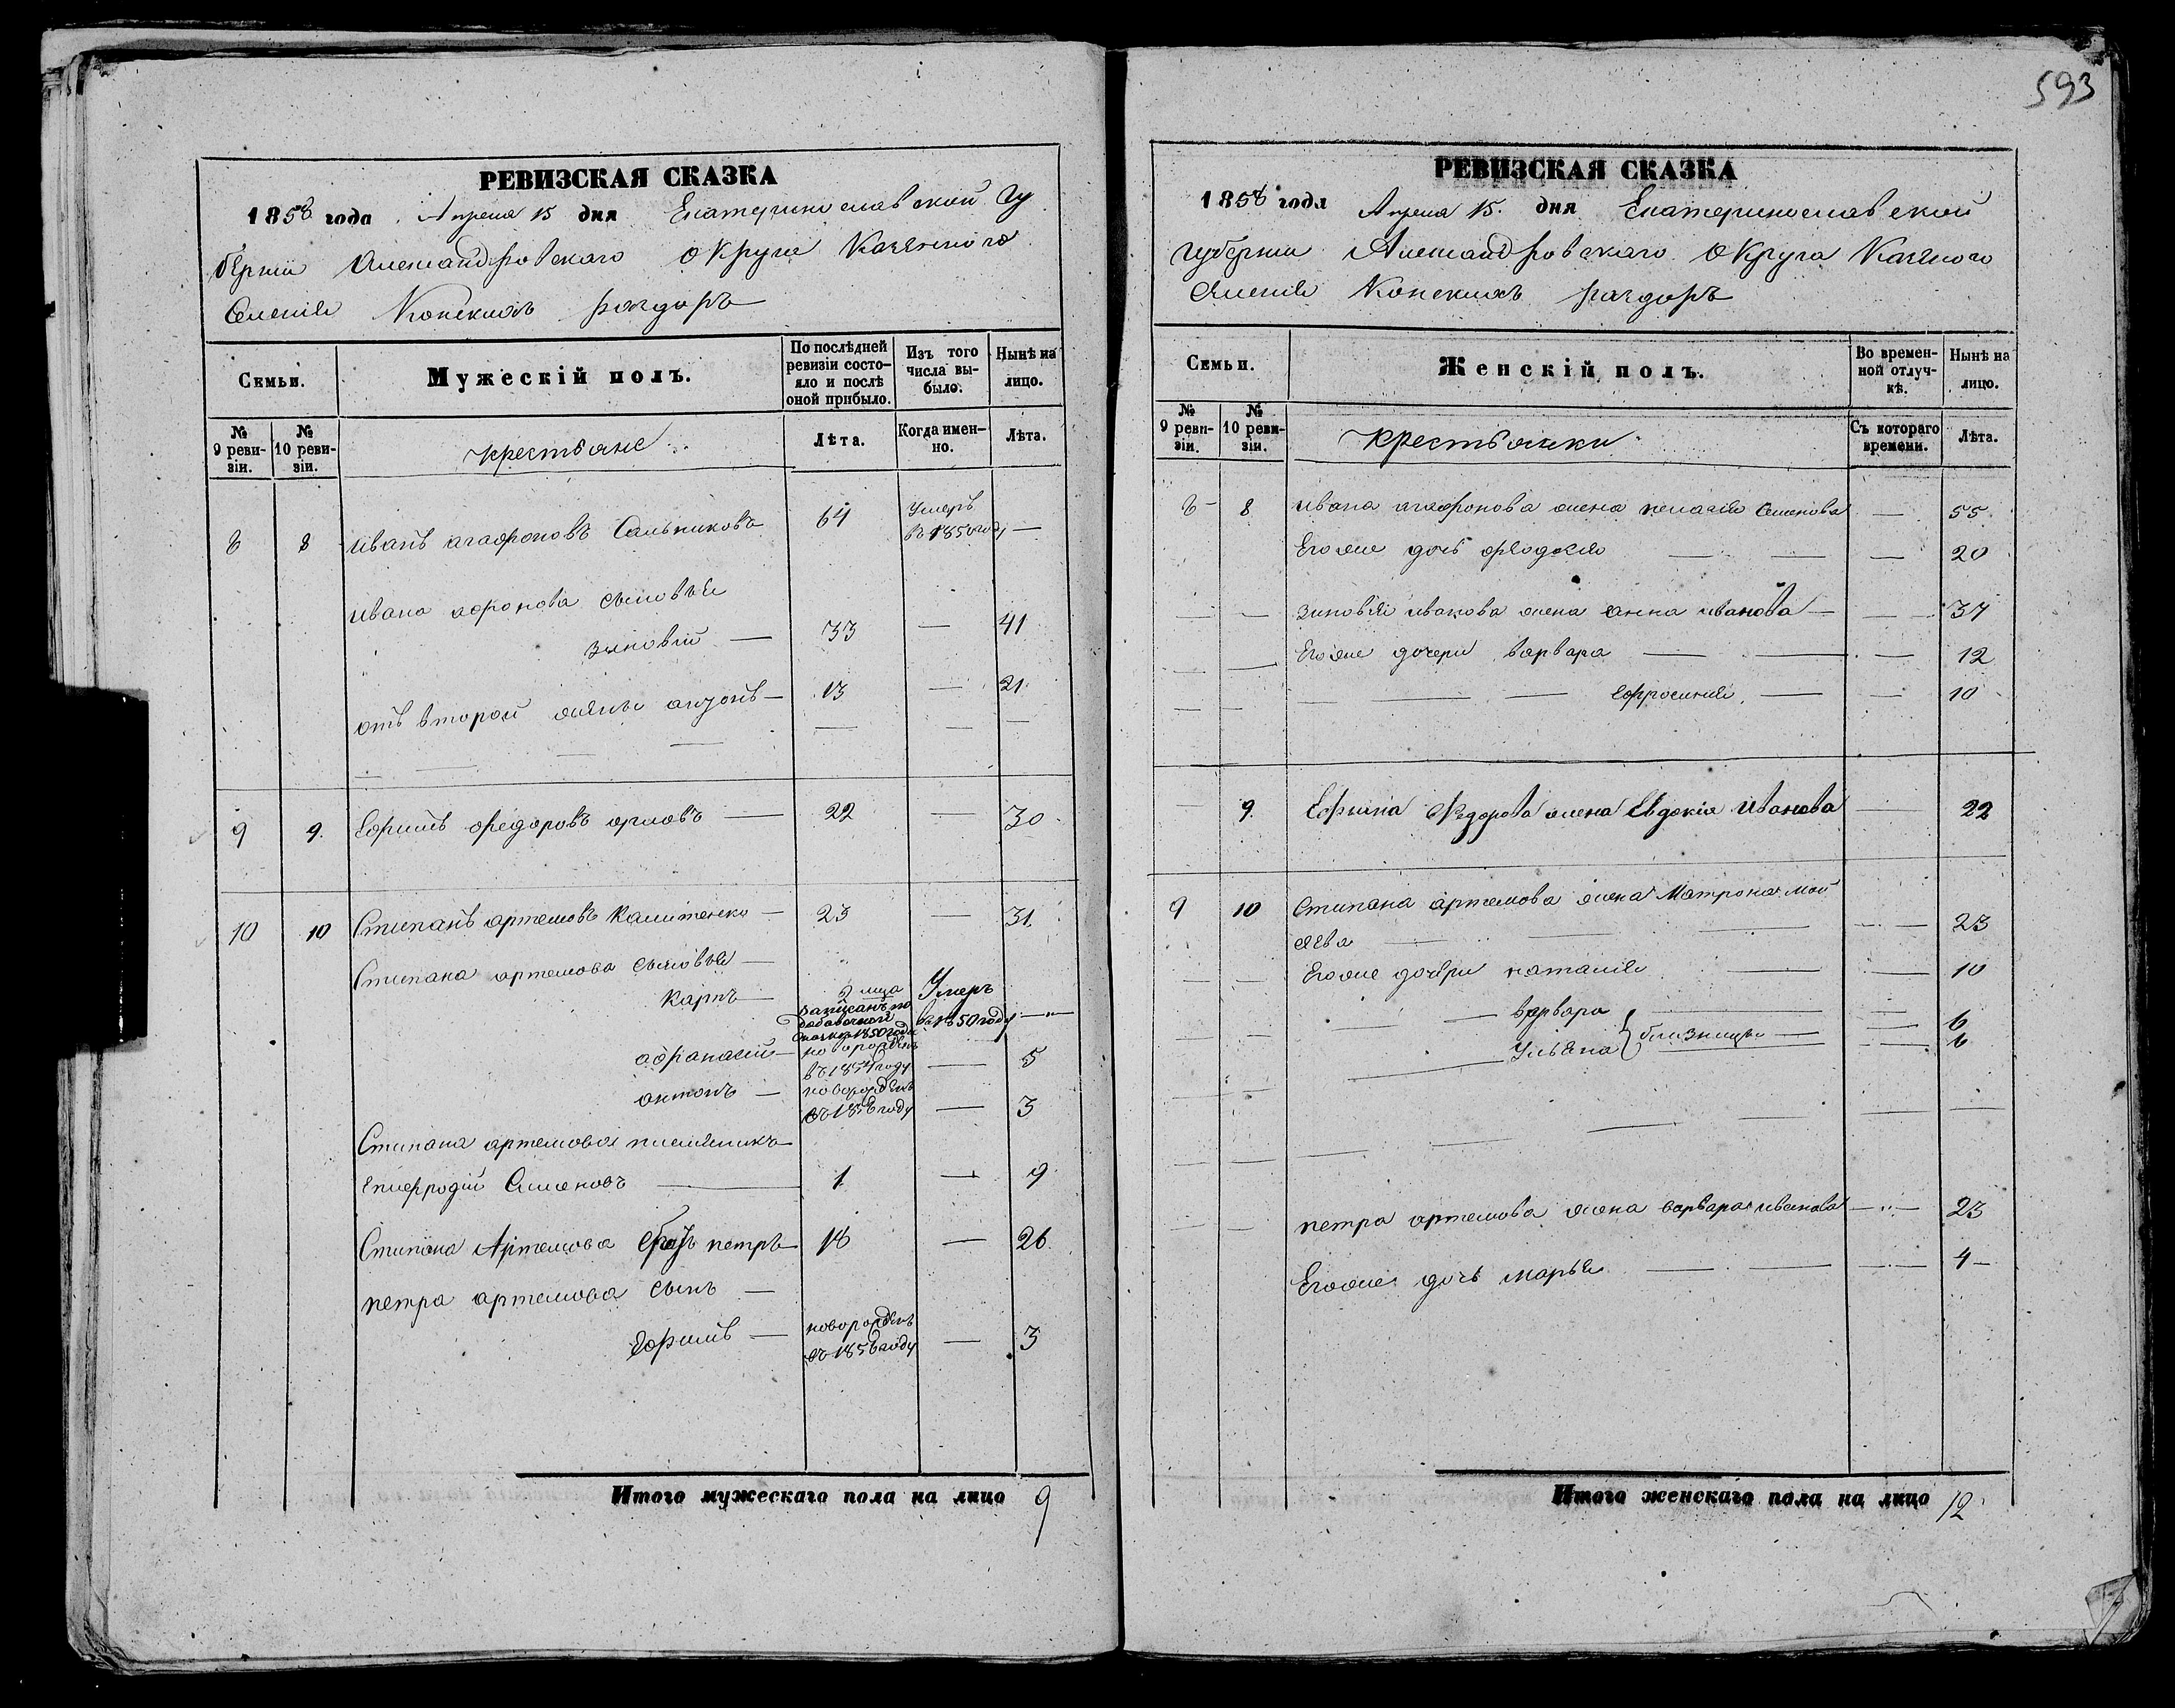 593
РЕВИЗСКАЯ СКАЗКА
1858 года Апреля 15 дня Екатеринославской гу
берніи Александровскаго округа Казенного
Селенія Конскихъ раздоръ
Семьи.
Мужескій полъ.
По послѣдней ревизіи состояло и послѣ оной прибыло.
Изъ того числа выбыло.
Нынѣ на лицо.
№ 9 ревизіи.
№ 10 ревизіи.
крестьяне
Лѣта.
Когда именно.
Лѣта.
8 8 иванъ агафоновъ Сальниковъ 64 Умеръ въ 1850 году —
ивана афонова сыновья
зиновій — 33 — 41
отъ второй жены — 13 — 21
9 9. Ефимъ федоровъ орловъ — 22 — 30
10 10 Стипанъ артемовъ — 23 — 31.
Стипана артемова сыновья —
Карпъ — записанъ по добавочной сказкѣ 1850 года Умеръ въ 1850 году — " —
афанасій — новорожденъ въ 1854 году — 5
антонъ — новорожденъ въ 1856 году — 3
Стипана артемова племеникъ
Семеновъ — 1 — 9
Стипана Артемова братъ петръ — 18 — 26.
петра артемова сынъ —
Ефимъ — новорожденъ въ 1856 году — 3
Итого мужескаго пола на лицо 9
РЕВИЗСКАЯ СКАЗКА
1858 года Апреля 15. дня Екатеринославской
губерніи Александровскаго округа Казеного
Селенія Конскихъ раздоръ
Семьи.
Женскій полъ.
Во временной отлучкѣ.
Нынѣ на лицо.
№ 9 ревизіи.
№ 10 ревизіи.
крестьянки
Съ котораго времени.
Лѣта.
8 8 ивана агафонова жена пелагія Семенова — 55
Его же дочь феодосія — — — 20
— — зиновія иванова жена анна иванова — — 37
— Его же дочери варвара — — — 12
— — — — ефросинія, — — 10
— 9. Ефима Федорова жена Евдокіа Иванова — 22
9 10 Стипана артемова жена Матрона мои
сѣева — — — — 23
— — Его же дочери наталия — — 10
— варвара — — 6
— Ульяна } близницы — — 6
— — петра артемова жена варвара иванова — " — 23
Его же дочь марья — — — 4 —
Итого женскаго пола на лицо 12